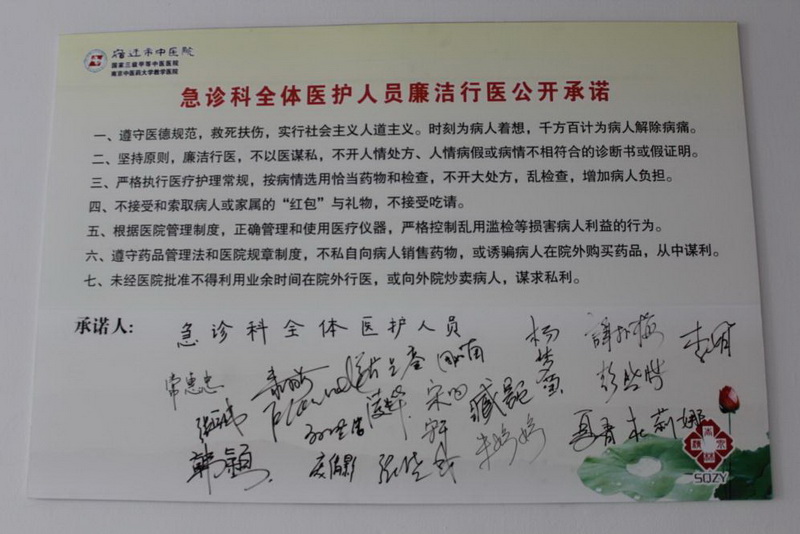 宿迁市中医院
国家三级甲等中医医院
南京中医药大学教学医院
急诊科全体医护人员廉洁行医公开承诺
一、遵守医德规范，救死扶伤，实行社会主义人道主义。时刻为病人着想，千方百计为病人解除病痛。
二、坚持原则，廉洁行医，不以医谋私，不开人情处方、人情病假或病情不相符合的诊断书或假证明。
三、严格执行医疗护理常规，按病情选用恰当药物和检查，不开大处方，乱检查，增加病人负担。
四、不接受和索取病人或家属的“红包”与礼物，不接受吃请。
五、根据医院管理制度，正确管理和使用医疗仪器，严格控制乱用滥检等损害病人利益的行为。
六、遵守药品管理法和医院规章制度，不私自向病人销售药物，或诱骗病人在院外购买药品，从中谋利。
七、未经医院批准不得利用业余时间在院外行医，或向外院炒卖病人，谋求私利。
承诺人：急诊科全体医护人员
常惠忠
韩颖
朱婷婷
夏青
SQZY